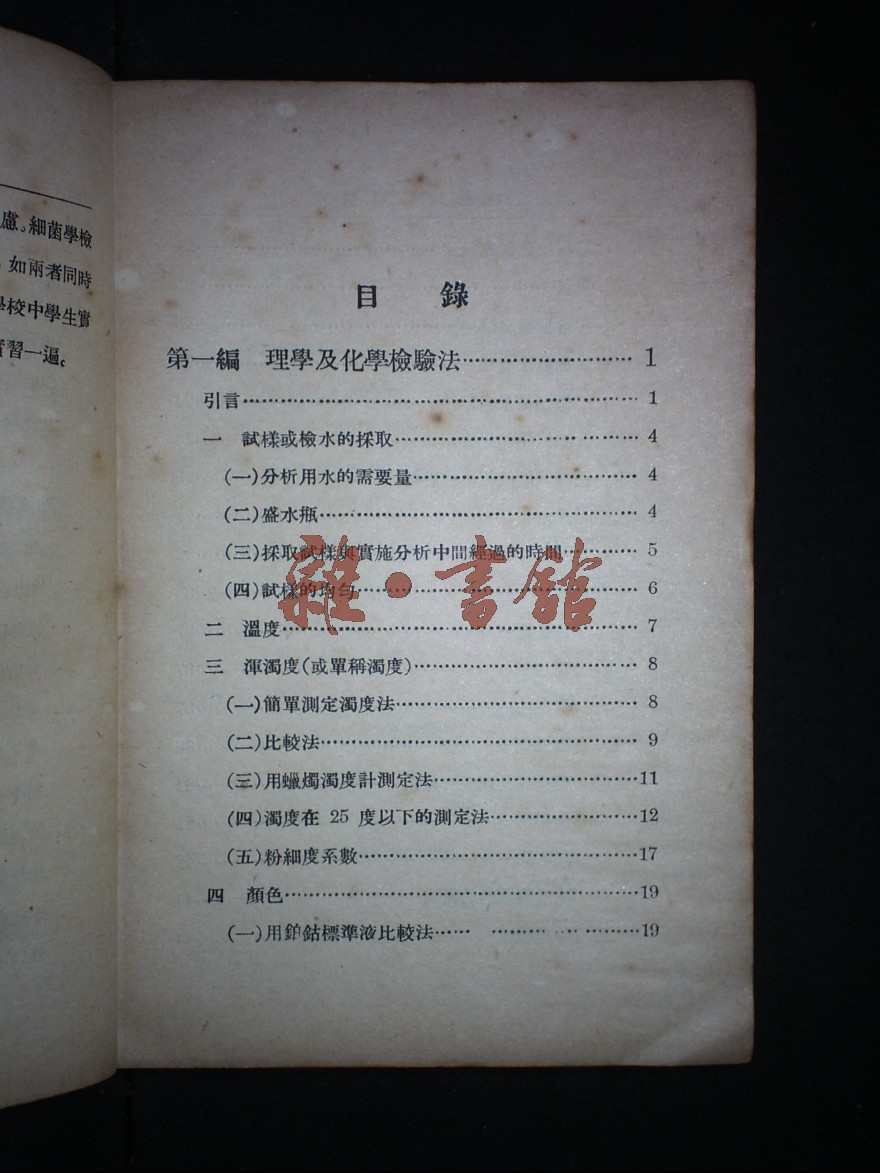 慮。細菌學檢
如兩者同時
學校中學生實
實習一遍。
目 錄
第一編 理學及化學檢驗法…………………… 1
引言…………………………………………… 1
一 試樣或檢水的採取………………………… 4
(一)分析用水的需要量……………………… 4
(二)盛水瓶…………………………………… 4
(三)採取試樣與實施分析中間經過的時間……… 5
(四)試樣的均勻……………………………… 6
二 溫度………………………………………… 7
三 渾濁度(或單稱濁度)……………………… 8
(一)簡單測定濁度法………………………… 8
(二)比較法…………………………………… 9
(三)用蠟燭濁度計測定法……………………11
(四)濁度在 25 度以下的測定法………………12
(五)粉細度系數………………………………17
四 顏色…………………………………………19
(一)用鉑鈷標準液比較法……………………19
雜·書館